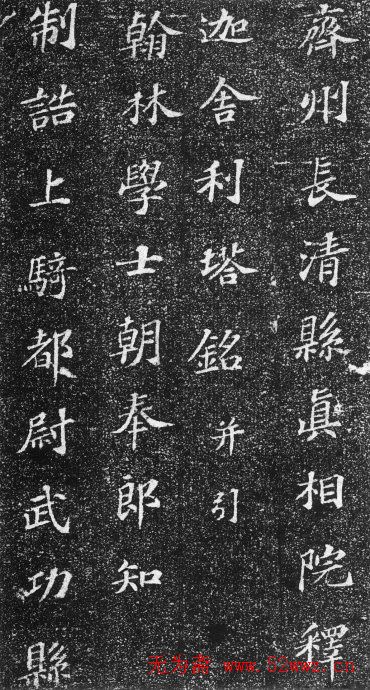 齊州長清縣真相院釋
迦舍利塔銘 并引
翰林學士朝奉郎知
制誥上騎都尉武功縣
无为斋 www.52wwz.cn